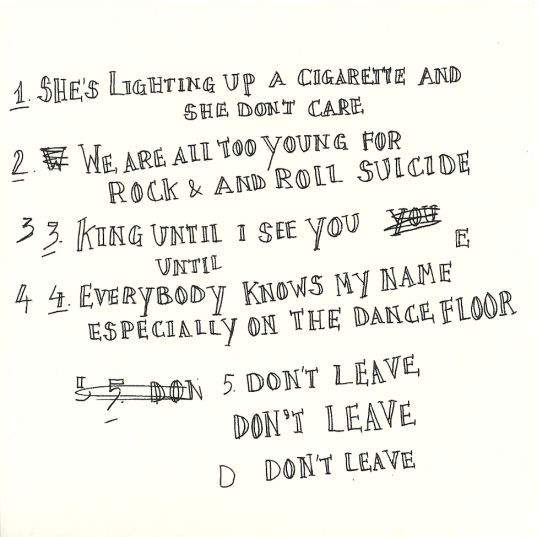 1. SHE'S LIGHTING UP A CIGARETTE AND
SHE DONT CARE
2. W WE ARE ALL TOO YOUNG FOR
ROCK & AND ROLL SUICIDE
3 3. KING UNTIL I SEE YOU YOU
E
UNTIL
4 4. EVERYBODY KNOWS MY NAME
ESPECIALLY ON THE DANCE FLOOR
5 5. DON 5. DON'T LEAVE
DON'T LEAVE
D DON'T LEAVE